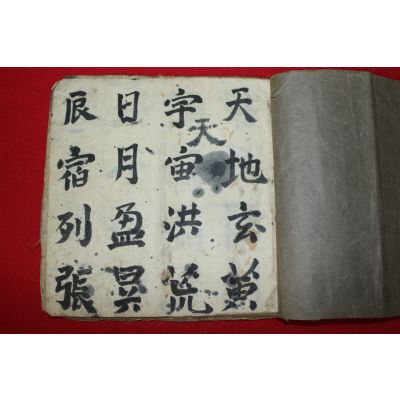 天地玄黃
宇宙洪荒
天
日月盈昃
辰宿列張